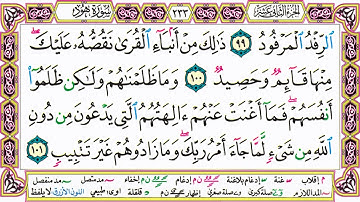 الجزء الثاني عشر ٢٣٣ سورة هود
ٱلرِّفۡدُ ٱلۡمَرۡفُودُ ٩٩ ذَٰلِكَ مِنۡ أَنۢبَآءِ ٱلۡقُرَىٰ نَقُصُّهُۥ عَلَيۡكَۖ
مِنۡهَا قَآئِمٞ وَحَصِيدٞ ١٠٠ وَمَا ظَلَمۡنَٰهُمۡ وَلَٰكِن ظَلَمُوٓاْ
أَنفُسَهُمۡۖ فَمَآ أَغۡنَتۡ عَنۡهُمۡ ءَالِهَتُهُمُ ٱلَّتِي يَدۡعُونَ مِن دُونِ
ٱللَّهِ مِن شَيۡءٖ لَّمَّا جَآءَ أَمۡرُ رَبِّكَۖ وَمَا زَادُوهُمۡ غَيۡرَ تَتۡبِيبٖ ١٠١